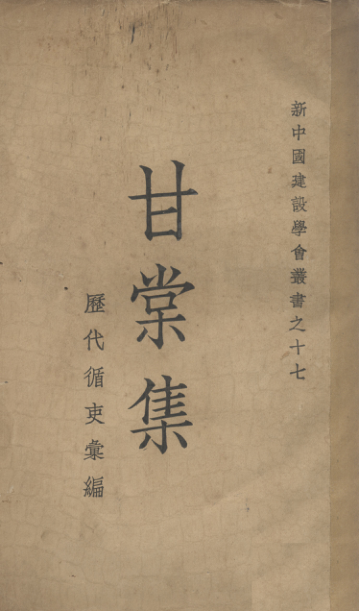 新中國建設學會叢書之十七
甘棠集
歷代循吏彙編